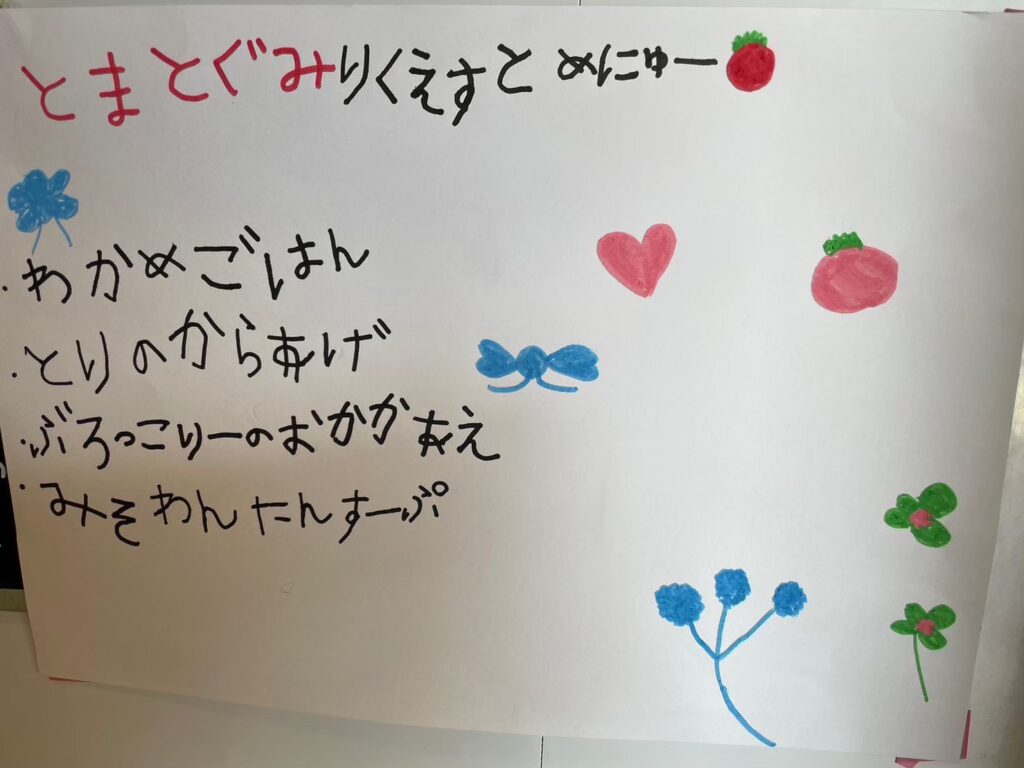 とまとぐみりくえすと めにゅー
・わかめごはん
・とりのからあげ
・ぶろっこりーのおかかあえ
・みそわんたんすーぷ